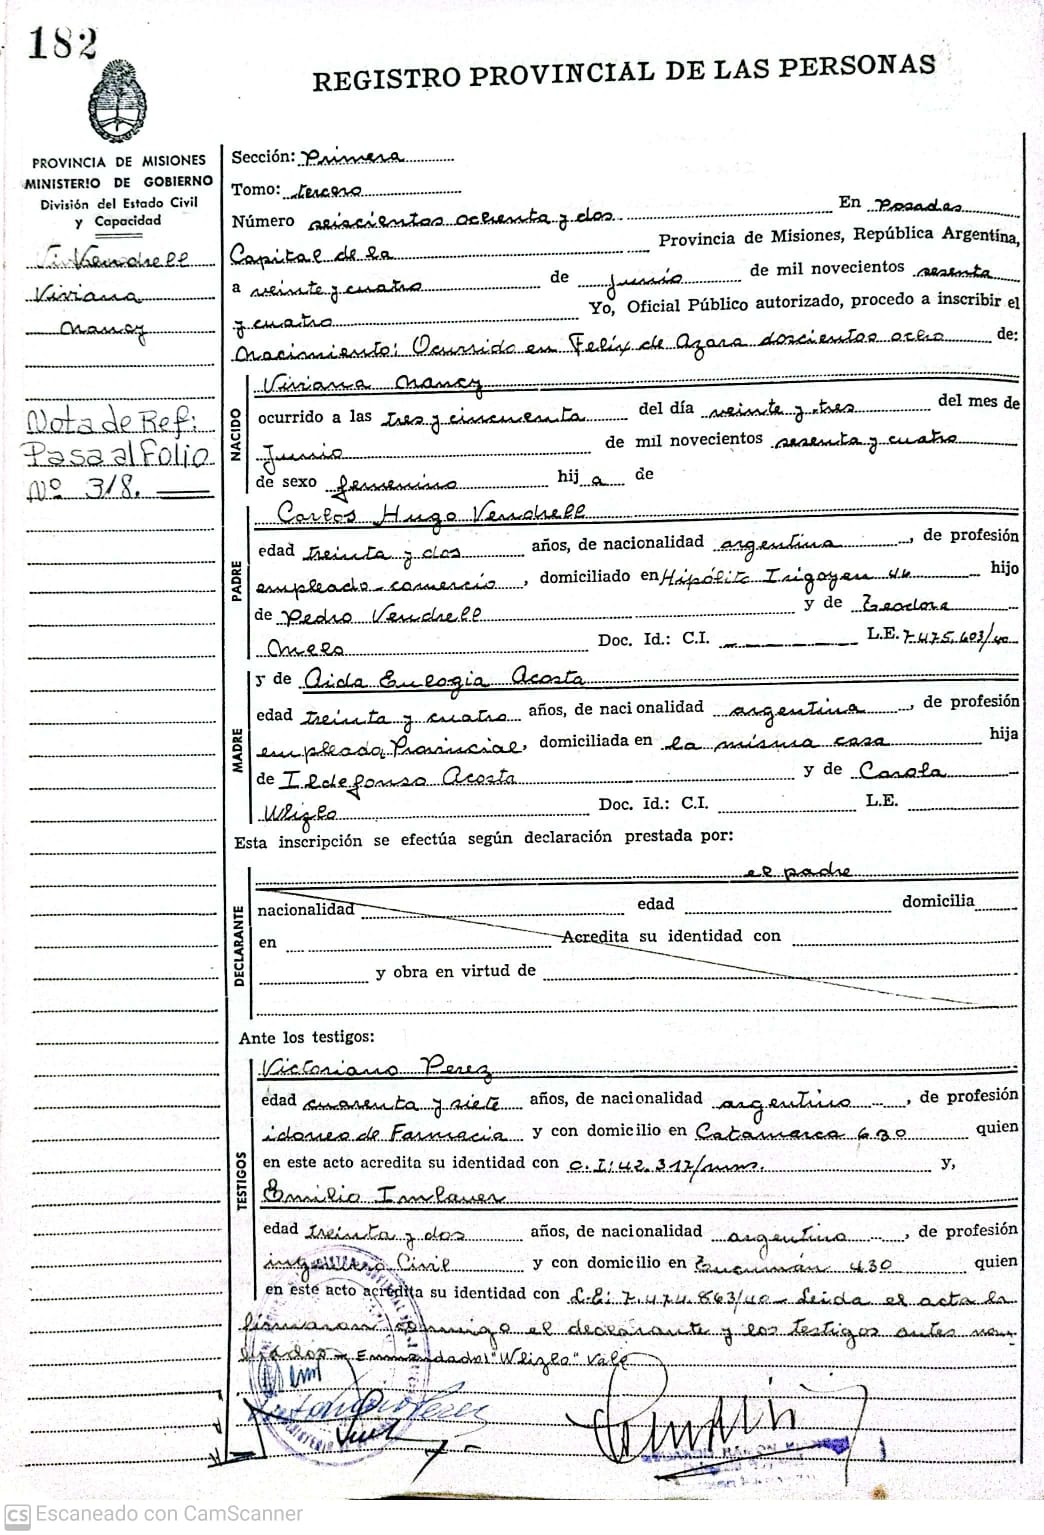 182
REGISTRO PROVINCIAL DE LAS PERSONAS
PROVINCIA DE MISIONES
MINISTERIO DE GOBIERNO
División del Estado Civil
y Capacidad
Vendrell
Viviana
Nancy
Nota de Ref:
Pasa al Folio
Nº 318.
Sección: Primera
Tomo: tercero
Número seiscientos ochenta y dos En Posadas
Capital de la Provincia de Misiones, República Argentina,
a veinte y cuatro de Junio de mil novecientos sesenta
y cuatro Yo, Oficial Público autorizado, procedo a inscribir el
nacimiento: Ocurrido en Felix de Azara doscientos ocho de:
NACIDO
Viviana Nancy
ocurrido a las tres y cincuenta del día veinte y tres del mes de
Junio de mil novecientos sesenta y cuatro
de sexo femenino hij a de
PADRE
Carlos Hugo Vendrell
edad treinta y dos años, de nacionalidad argentina, de profesión
empleado comercio, domiciliado en Hipólito Irigoyen 46 hijo
de Pedro Vendrell y de Teodora
Melo Doc. Id.: C.I. L.E. 7.475.603/40
MADRE
y de Aida Eulogia Acosta
edad treinta y cuatro años, de nacionalidad argentina, de profesión
empleada Provincial, domiciliada en la misma casa hija
de Ildefonso Acosta y de Carola
Wlizlo Doc. Id.: C.I. L.E.
Esta inscripción se efectúa según declaración prestada por:
DECLARANTE
el padre
nacionalidad edad domicilia
en Acredita su identidad con
y obra en virtud de
Ante los testigos:
TESTIGOS
Victoriano Perez
edad cuarenta y siete años, de nacionalidad argentino, de profesión
idoneo de Farmacia y con domicilio en Catamarca 630 quien
en este acto acredita su identidad con C.I: 42.317/mns. y,
Emilio Imlauer
edad treinta y dos años, de nacionalidad argentino, de profesión
ingeniero Civil y con domicilio en Tucumán 430 quien
en este acto acredita su identidad con L.E: 7.474.863/40 - Leida el acta la
firmaron conmigo el declarante y los testigos antes nom-
brados - Enmendado: "Wlizlo" Vale
CS Escaneado con CamScanner